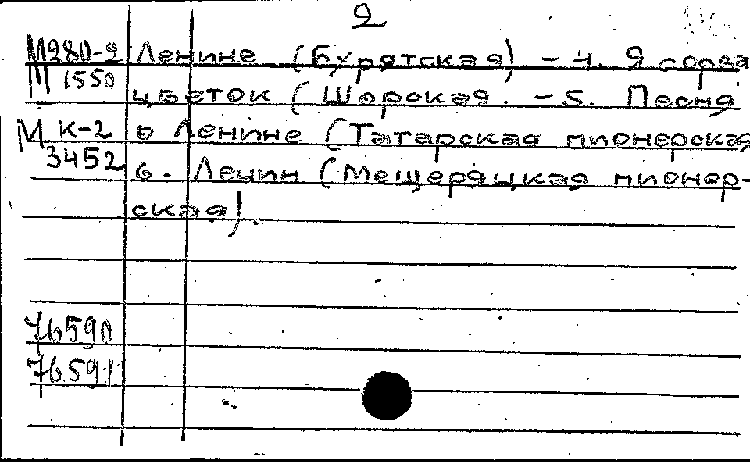 2
М980-2 Ленине (Бурятская) – 4. Я сорвал
М 1550 цветок (Шорская. – 5. Песня
М К-2 о Ленине (Татарская пионерская
3452 6. Ленин (Мещеряцкая пионер-
ская).
76590
76591